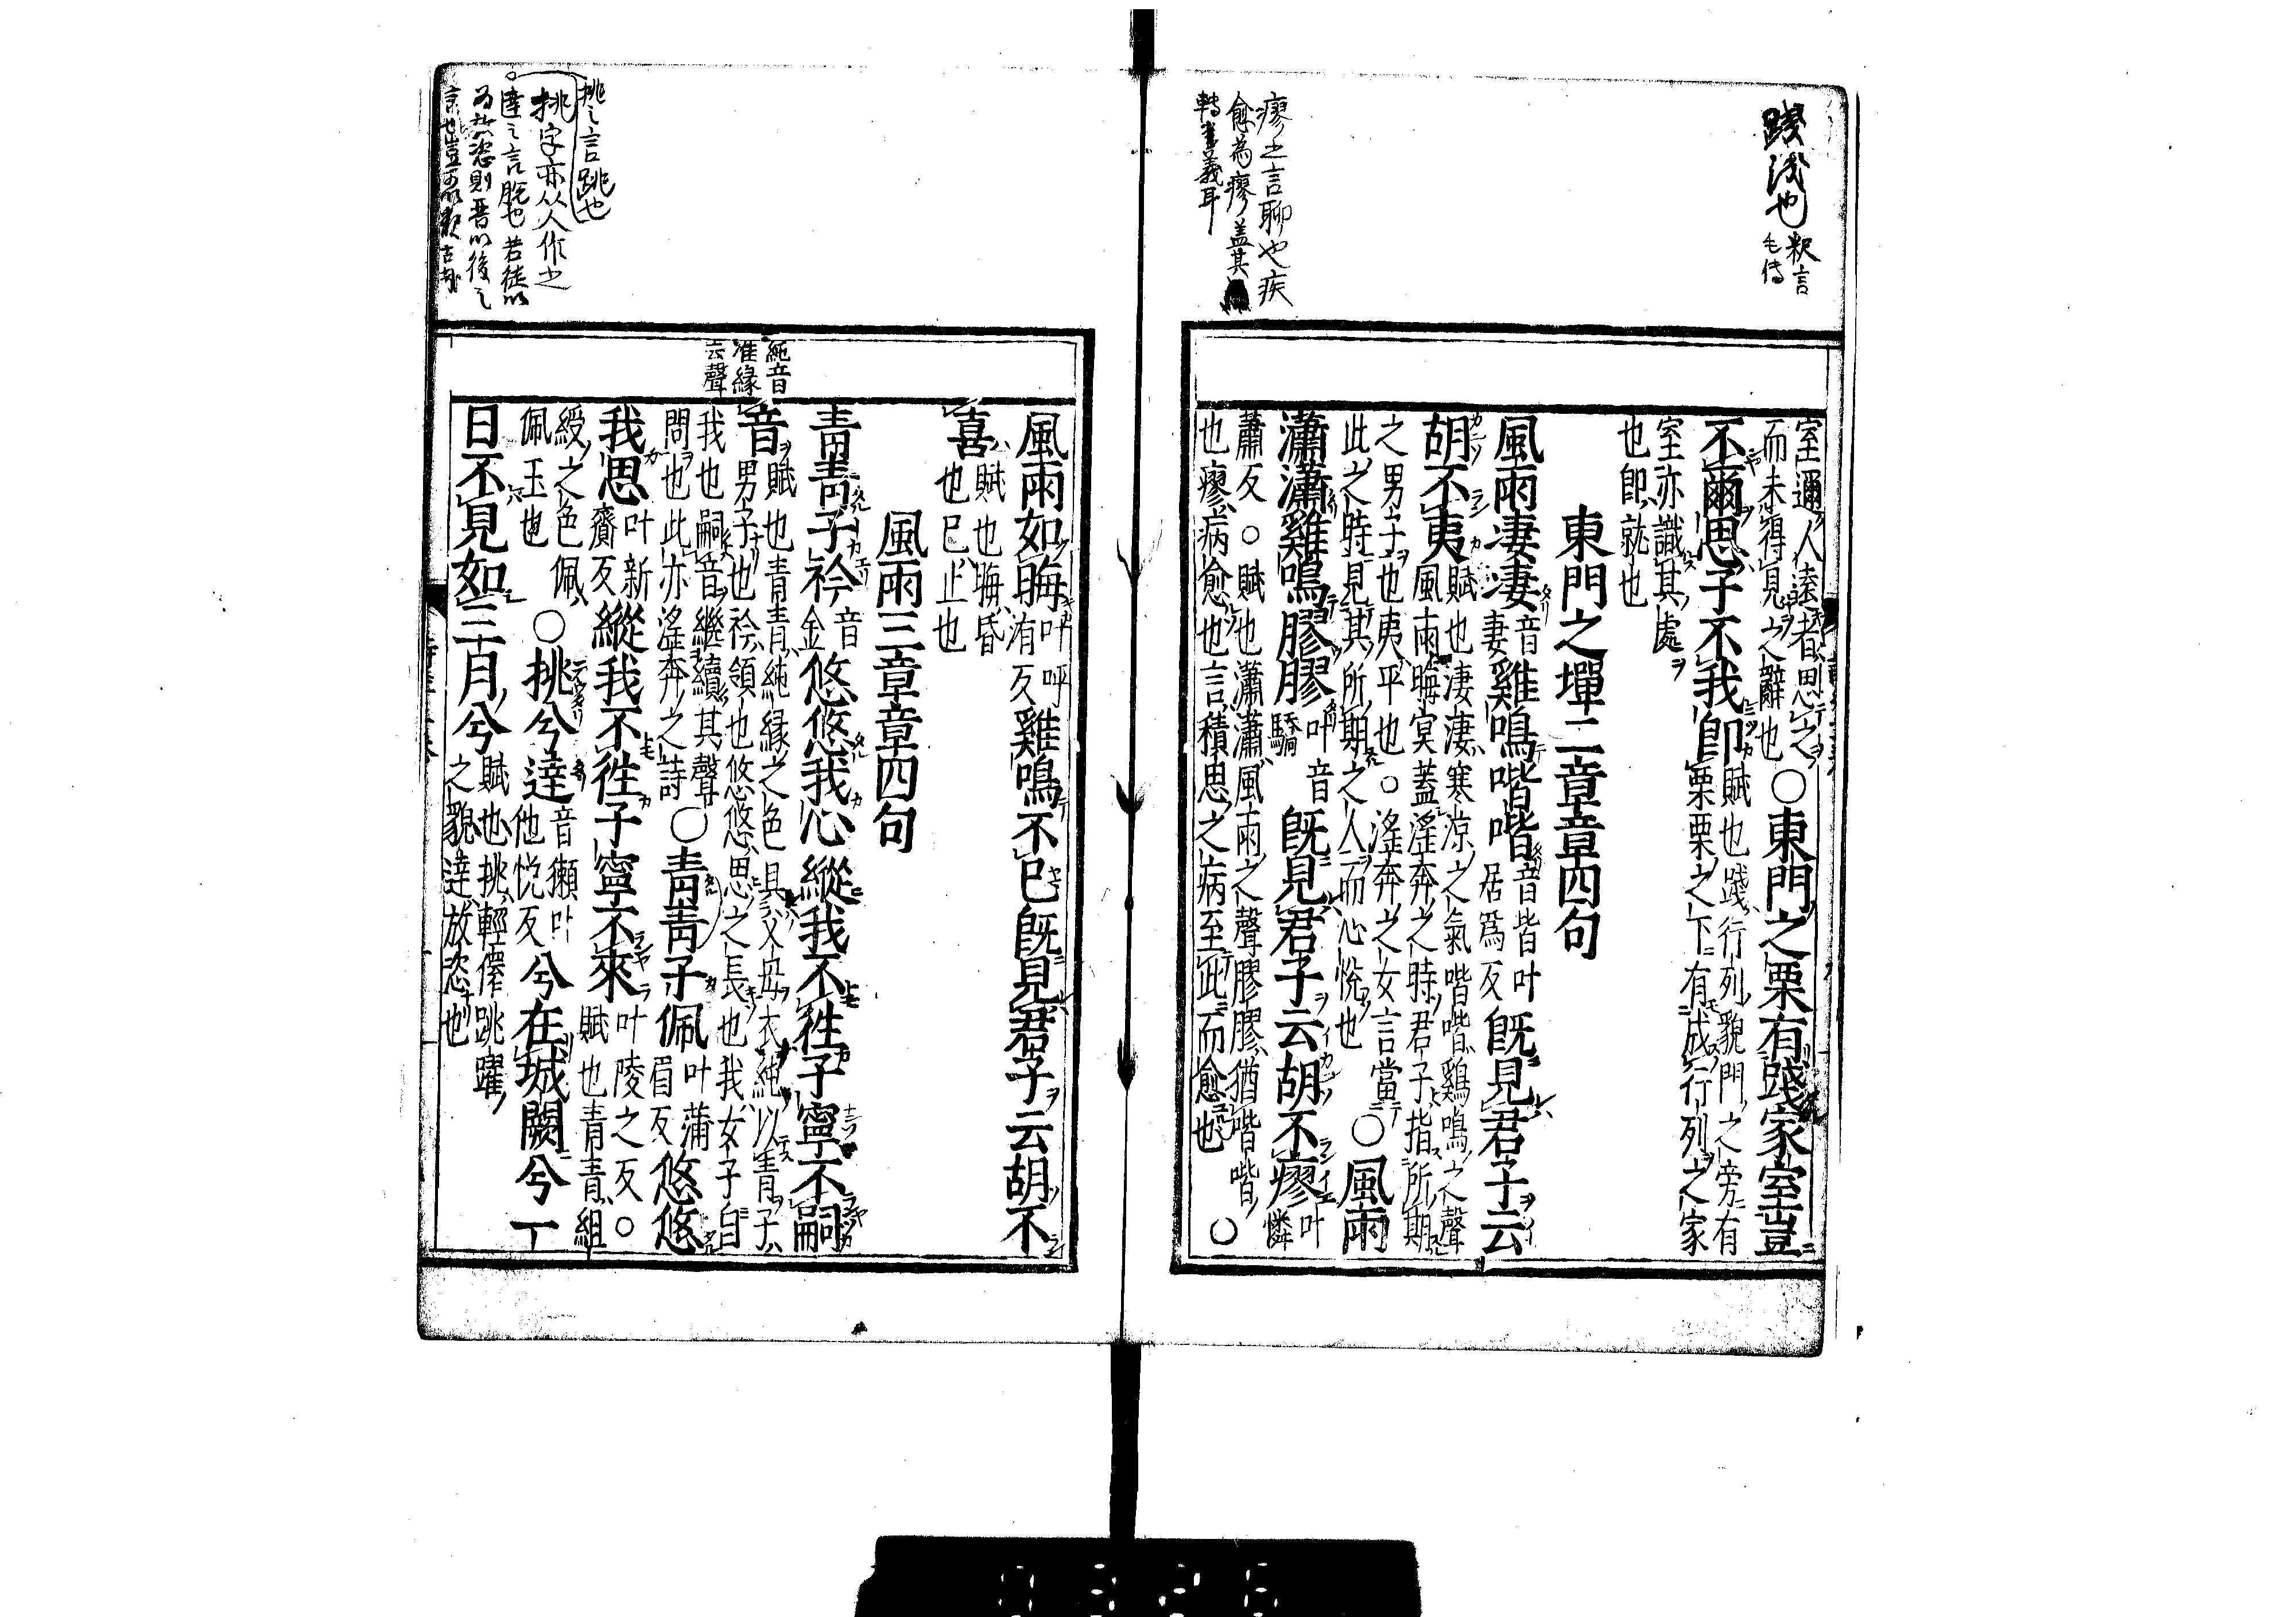 踐淺也 釈言
毛傳
室邇人遠者思之
而未得見之辭也
○東門之栗有踐家室豈
不爾思子不我即
賦也踐行列貌門之旁有
栗栗之下有成行列之家
室亦識其處
也即就也
東門之墠二章章四句
風雨淒淒音
妻
雞鳴喈喈音皆叶
居爲反
旣見君子云
胡不夷
賦也淒淒寒涼之氣喈喈鷄鳴之聲
風雨晦冥蓋淫奔之時君子指所期
之男子也夷平也○淫奔之女言當
此之時見其所期之人而心悅也
○風雨
瀟瀟雞鳴膠膠叶音
驕
旣見君子云胡不瘳叶
憐
蕭反○賦也瀟瀟風雨之聲膠膠猶喈喈
也瘳病愈也言積思之病至此而愈也
○
瘳之言聊也疾
愈為瘳蓋其
轉義耳
風雨如晦叶呼
洧反
雞鳴不已旣見君子云胡不
喜
賦也晦昏
也已止也
風雨三章章四句
青青子衿音
金
悠悠我心縱我不徃子寧不嗣
音
純音
准緣
去聲
賦也青青純緣之色具父母衣純以青子
男子也衿領也悠悠思之長也我女子自
我也嗣音繼續其聲
問也此亦淫奔之詩
○青青子佩叶蒲
眉反
悠悠
我思叶新
齎反
縱我不徃子寧不來叶陵之反○
賦也青青組
綬之色佩
佩玉也
○挑兮達音獺叶
他悅反
兮在城闕兮一
日不見如三月兮
賦也挑輕儇跳躍
之貌達放恣也
挑之言跳也
挑字亦从人作之
○達之言脫也若徒以
為放恣則晋以後之